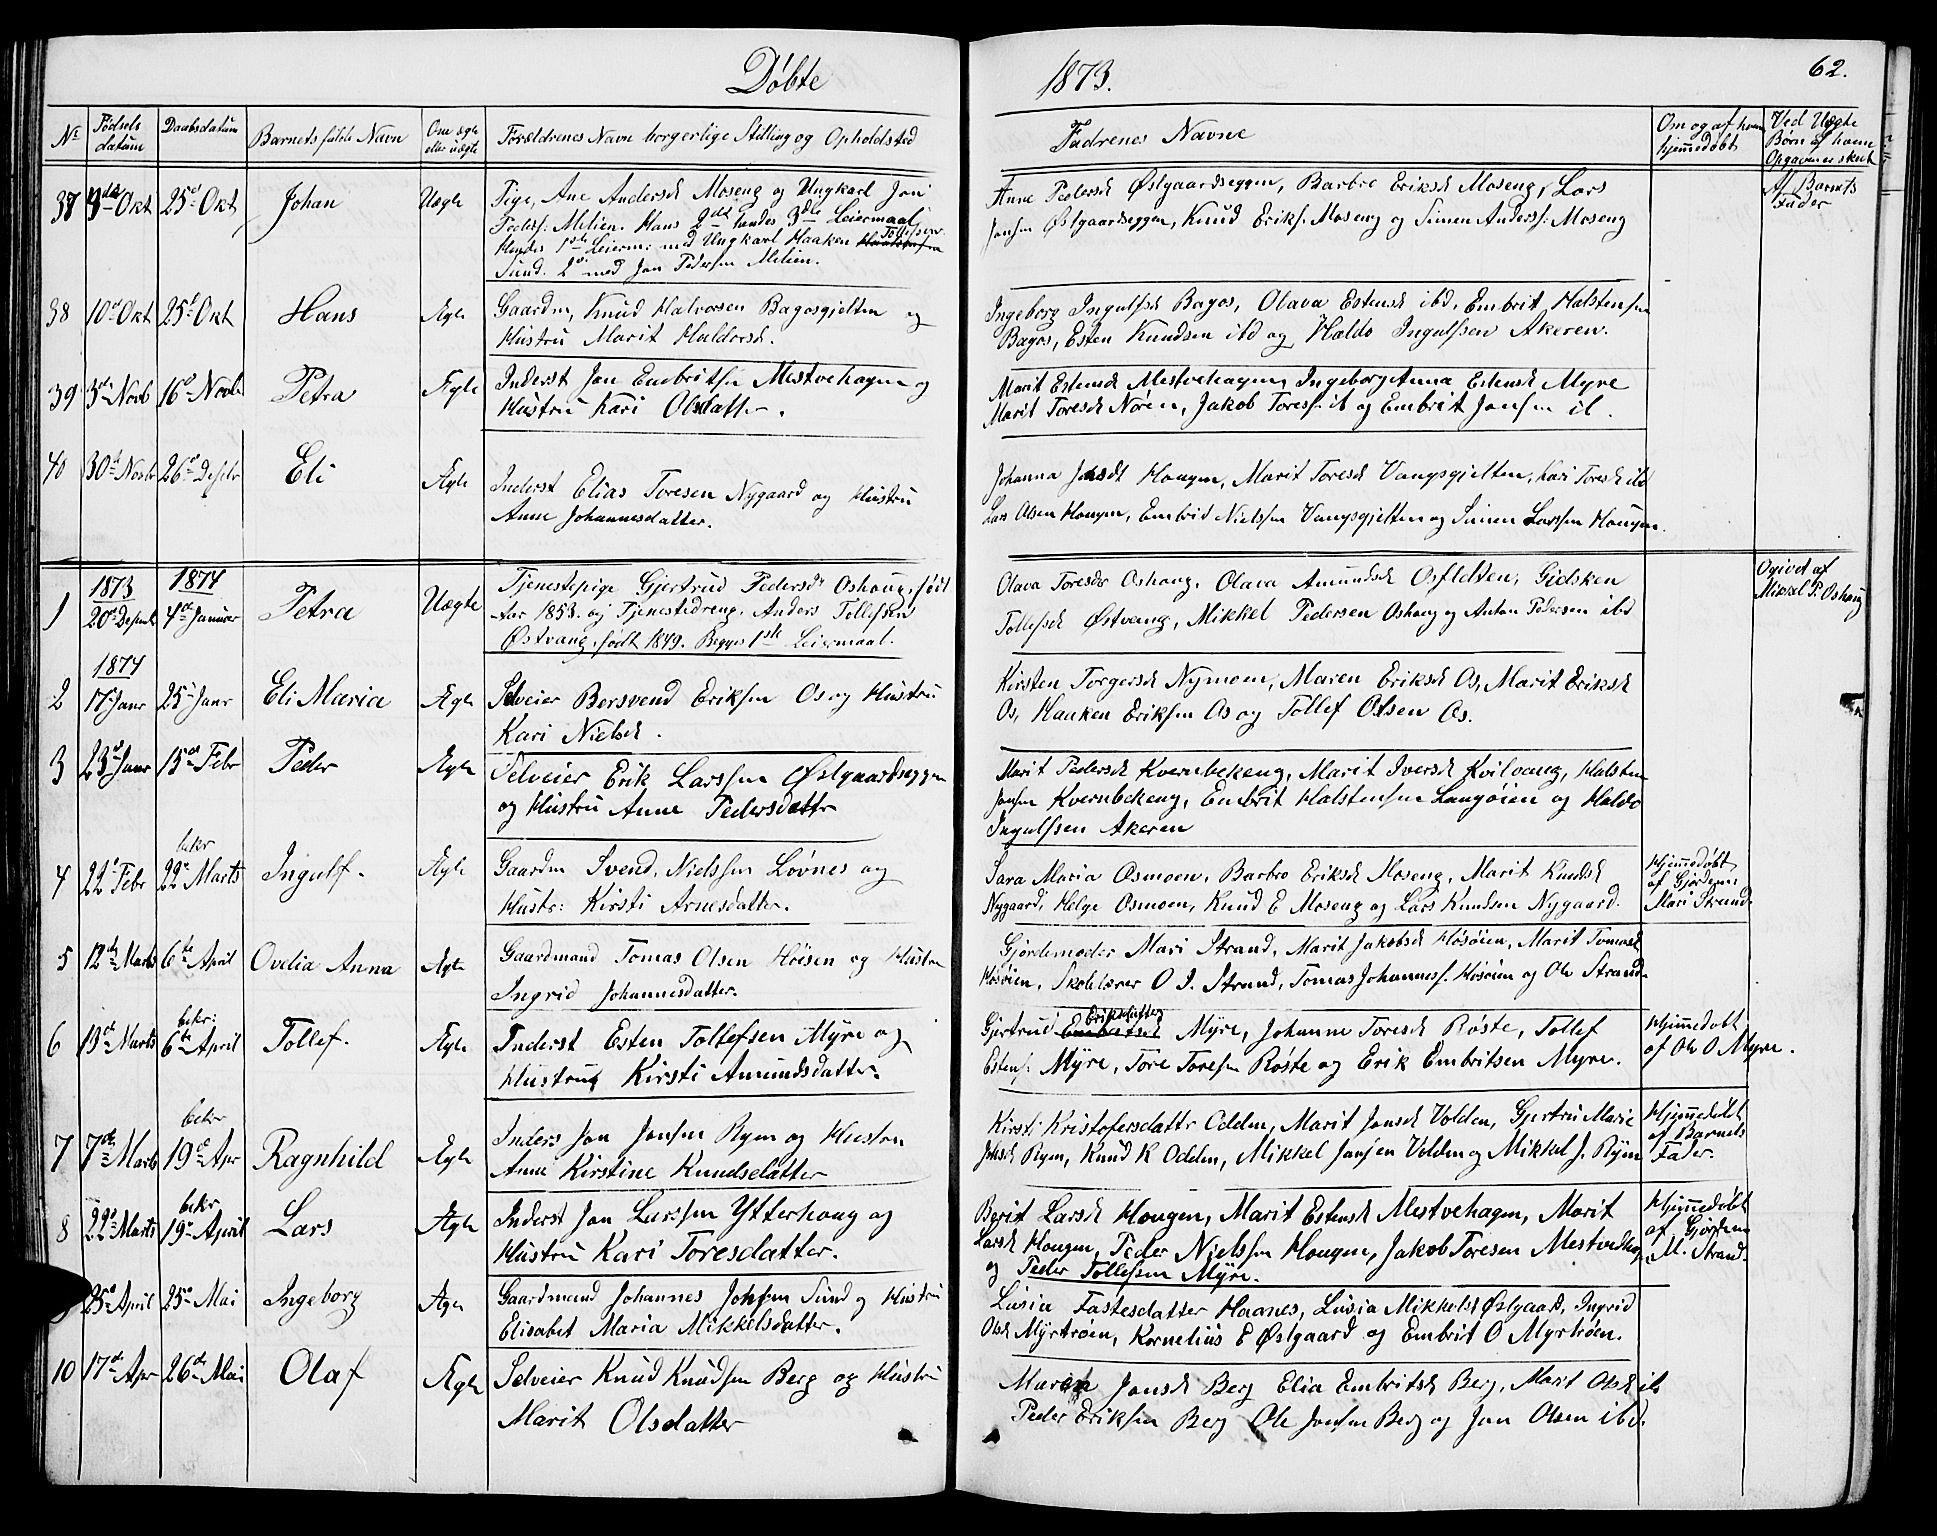 Døbte 1873. 62.
No Fødsels datum Daabsdatum Barnets fulde Navn Om ægte eller uægte Forældrenes Navn borgerlige Stilling og Opholdsted Fadrenes Navne Om og af hvem hjemmedøbt Ved Uægte Børn af hvem Opgaven er skeet
37 3die Okt 25d Okt Johan Uægte Pige, Ane Andersd Moseng og Ungkarl Jon
Peders: Melien. Hans 2det hendes 3die Leiermaal
Hendes 1ste Leierm: med Ungkarl Haaken Tollefsen
Sund. 2d med Jon Pedersen Melien.
Anne Pedersd Østgaardseggen, Barbro Eriksd Moseng, Lars
Jonsen Østgaardseggen, Knud Eriks. Moseng og Simen Anders: Moseng
Af Barnets
Fader
38 10d Okt 25d Okt Hans Ægte Gaardm, Knud Halvorsen Bagosgjelten og
Hustru Marit Haldorsd.
Ingeborg Ingulfsd Bagos, Olava Estensd ibd, Embrit Halstensen
Bagos, Esten Knudsen ibd og Haldo Ingulfsen Akeren.
39 3di Novb 16d Novbr Petra Ægte Inderst Jon Embritsen Mestvehagen og
Hustru Kari Olsdatter.
Marit Estensd Mestvehagen, Ingeborg Anna Estensd Myre
Marit Toresd Nøren, Jakob Tores: ib og Embrit Jonsen ib.
40 30te Novbr 26d Desbr Eli Ægte Inderst Elias Toresen Nygaard og Hustru
Anne Johannesdatter.
Johanna Jonsdt Hougen, Marit Toresd Vangsgjelten, Kari Toresd ibd
Lars Olsen Hougen, Embrit Nielssen Vangsgjelten og Simen Larssen Hougen.
1873 1874
1 20d Desembr 4de Januar Petra Uægte Tjenestepige Gjertrud Pedersdt Oshaug, født
Aar 1853. og Tjenestedreng, Anders Tollefsen
Østvang, født 1849. Begges 1ste Leiermaal.
Olava Toresdr Oshaug, Olava Amundsd Osfldten, Gidsken
Tollefsd Østvang, Mikkel Pedersen Oshaug og Anton Pedersen ibd
Ogivet af
Mikkel P. Oshaug
1874
2 17d Janr 25d Janr Eli Maria Ægte Selveier Borsvend Eriksen Os og Hustru
Kari Nielsd.
Kirsten Torgersd Nymoen, Maren Eriksd Os, Marit Eriksd
Os, Haaken Eriksen Os og Tollef Olsen Os.
3 23d Janr 15d Febr Peder Ægte Selveier Erik Larssen Østgaardseggen
og Hustru Anne Pedersdattr
Marit Pedersd Kvernbekeng, Marit Iversd Kvilvang, Halsten
Jonsen Kvernbekeng, Embrit Halstensen Langøien og Haldo
Ingulfssen Akeren
bekr
4 22d Febr 22d Marts Ingulf. Ægte Gaardm Svend Nielssen Løvnes og
Hustr: Kirsti Arnesdatter.
Sara Maria Osmoen, Barbro Eriksd Moseng, Marit Knudsd
Nygaard, Helge Osmoen, Knud E Moseng og Lars Knudsen Nygaard.
Hjemmedøbt
af Gjordem
Mari Strand
5 12te Marts 6te April Ovelia Anna Ægte Gaardmand Tomas Olsen Høisen og Hustru
Ingrid Johannesdatter.
Gjordemoder Mari Strand, Marit Jakobsd Høsøien, Marit Tomasd
Høsøien, Skolelærer O J. Strand, Tomas Johanness. Høsøien og Ole Strand.
bekr:
6 13d Marts 6te April Tollef. Ægte Inderst Esten Tollefsen Myre og
Hustru Kirsti Amundsdatter.
Eriksdatter
Gjertrud Embritsd Myre, Johanne Toresd Røste, Tollef
Estens: Myre, Tore Toresen Røste og Erik Embritsen Myre.
Hjemmedøbt
af Ole O Myre.
bekr
7 7de Marts 19d Apr Ragnhild Ægte Inders Jon Jonsen Ryen og Hustru
Anne Kirstine Knudsdatter
Kirsti Kristofersdattr Odden, Marit Jonsd Volden, Gjertru Marie
Jonsd Ryen, Knud K Odden, Mikkel Jonsen Volden og Mikkel J. Ryen
Hjemmedøbt
af Barnets
Fader.
bekr
8 22d Marts 19d April Lars Ægte Inderst Jon Larssen Ytterhaug og
Hustru Kari Toresdatter.
Berit Larsd Hougen, Marit Estensd Mestvehagen, Marit
Larsd Hougen, Peder Nielssen Hougen, Jakob Toresen Mestvedhag
og Peder Tollefsen Myre.
Hjemmedøbt
af Gjordem
M. Strand.
25d April 25d Mai Ingeborg Ægte Gaardmand Johannes Johnsen Sund og Hustru
Elisabet Maria Mikkelsdatter.
Lusia Fastesdatter Haanes, Lusia Mikkelsd Østgaard, Ingrid
Olsd Myrtrøen, Kornelius E Østgaard og Embrit O Myrtrøen.
10 17de Apr 26de Mai Olaf Ægte Selveier Knud Knudsen Berg og Hustru
Marit Olsdatter
Maren Jonsd Berg Elia Embritsd Berg, Marit Olsd ib
Peder Eriksen Berg Ole Jonsen Berg og Jon Olsen ibd.